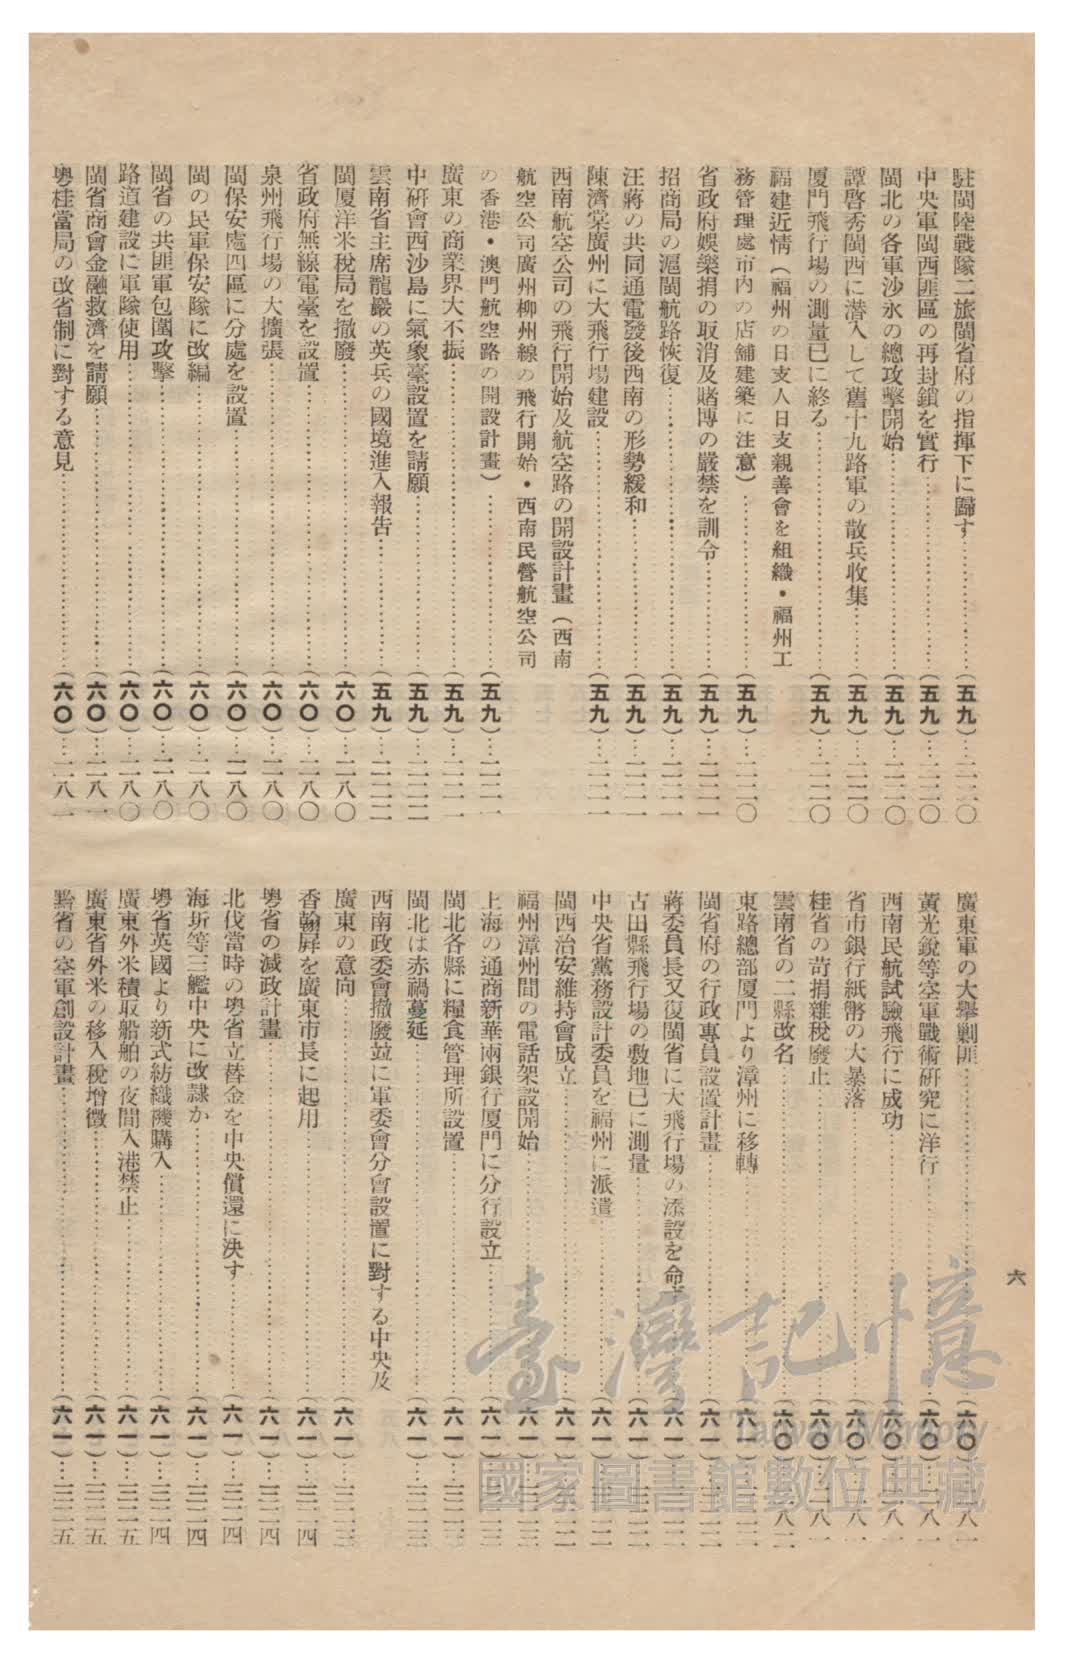 駐閩陸戰隊二旅閩省府の指揮下に歸す…………(五九)…二二〇
中央軍閩西匪區の再封鎖を實行…………(五九)…二二〇
閩北の各軍沙永の總攻擊開始…………(五九)…二二〇
譚啓秀閩西に潜入して舊十九路軍の散兵收集…………(五九)…二二〇
厦門飛行場の測量已に終る…………(五九)…二二〇
福建近情(福州の日支人日支親善會を組織・福州工
務管理處市内の店舗建築に注意)…………(五九)…二二〇
省政府娯樂捐の取消及賭博の嚴禁を訓令…………(五九)…二二一
招商局の滬閩航路恢復…………(五九)…二二一
汪蔣の共同通電發後西南の形勢緩和…………(五九)…二二一
陳濟棠廣州に大飛行場建設…………(五九)…二二一
西南航空公司の飛行開始及航空路の開設計畫(西南
航空公司廣州柳州線の飛行開始・西南民營航空公司
の香港・澳門航空路の開設計畫)…………(五九)…二二一
廣東の商業界大不振…………(五九)…二二一
中研會西沙島に氣象臺設置を請願…………(五九)…二二二
雲南省主席龍巖の英兵の國境進入報告…………(五九)…二二二
閩厦洋米稅局を撤廢…………(六〇)…二八〇
省政府無線電臺を設置…………(六〇)…二八〇
泉州飛行場の大擴張…………(六〇)…二八〇
閩保安處四區に分處を設置…………(六〇)…二八〇
閩の民軍保安隊に改編…………(六〇)…二八〇
閩省の共匪軍包圍攻擊…………(六〇)…二八〇
路道建設に軍隊使用…………(六〇)…二八〇
閩省商會金融救濟を請願…………(六〇)…二八一
粵桂當局の改省制に對する意見…………(六〇)…二八一
廣東軍の大擧剿匪…………(六〇)…二八一
黃光銳等空軍戰術研究に洋行…………(六〇)…二八一
西南民航試驗飛行に成功…………(六〇)…二八一
省市銀行紙幣の大暴落…………(六〇)…二八一
桂省の苛捐雜稅廢止…………(六〇)…二八一
雲南省の二縣改名…………(六〇)…二八二
東路總部厦門より漳州に移轉…………(六一)
閩省府の行政專員設置計畫…………(六一)
蔣委員長又復閩省に大飛行場の添設を命ず…………(六一)
古田縣飛行場の敷地已に測量…………(六一)
中央省黨務設計委員を福州に派遣…………(六一)
閩西治安維持會成立…………(六一)
福州漳州間の電話架設開始…………(六一)
上海の通商新華兩銀行厦門に分行設立…………(六一)
閩北各縣に糧食管理所設置…………(六一)…三二三
閩北は赤禍蔓延…………(六一)…三二三
西南政委會撤廢竝に軍委會分會設置に對する中央及
廣東の意向…………(六一)…三二三
香翰屛を廣東市長に起用…………(六一)…三二四
粵省の減政計畫…………(六一)…三二四
北伐當時の粵省立替金を中央償還に決す…………(六一)…三二四
海圻等三艦中央に改隷か…………(六一)…三二四
粵省英國より新式紡織機購入…………(六一)…三二四
廣東外米積取船舶の夜間入港禁止…………(六一)…三二五
廣東省外米の移入稅增徵…………(六一)…三二五
黔省の空軍創設計畫…………(六一)…三二五
六
臺灣記憶
Taiwan Memory
國家圖書館數位典藏